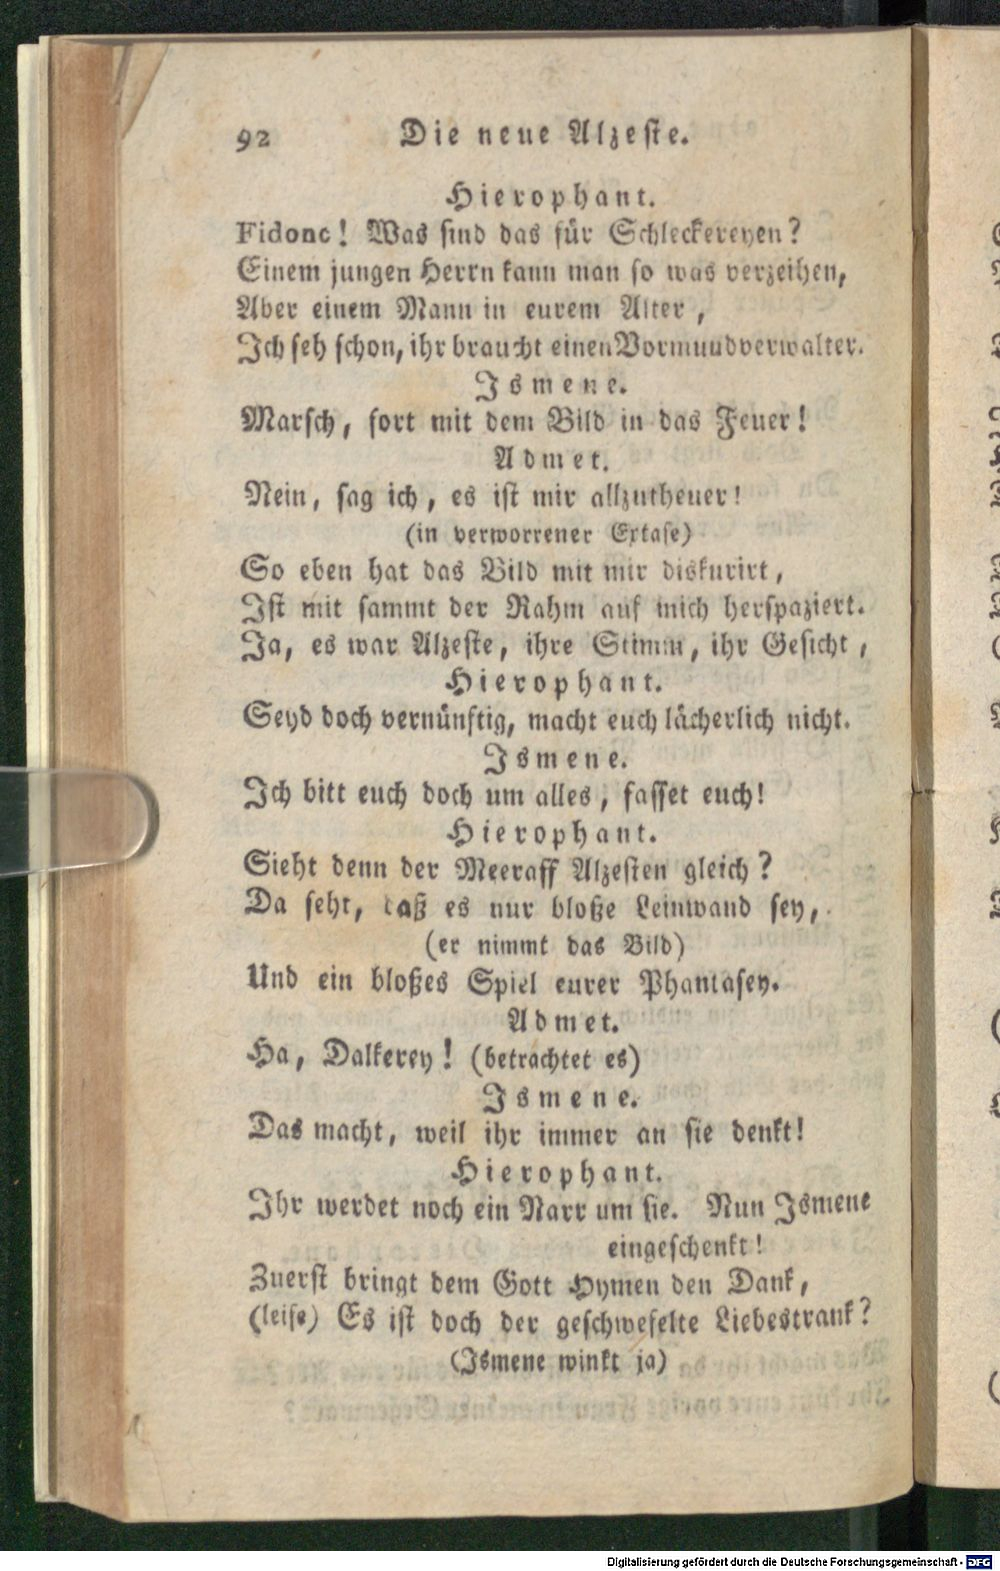 92 Die neue Alzeste.
Hierophant.
Fidonc! Was sind das für Schleckereyen?
Einem jungen Herrn kann man so was verzeihen,
Aber einem Mann in eurem Alter,
Ich seh schon, ihr braucht einen Vormundverwalter.
Ismene.
Marsch, fort mit dem Bild in das Feuer!
Admet.
Nein, sag ich, es ist mir allzutheuer!
(in verworrener Extase)
So eben hat das Bild mit mir diskurirt,
Ist mit sammt der Rahm auf mich herspaziert.
Ja, es war Alzeste, ihre Stimm, ihr Gesicht,
Hierophant.
Seyd doch vernünftig, macht euch lächerlich nicht.
Ismene.
Ich bitt euch doch um alles, fasset euch!
Hierophant.
Sieht denn der Meeraff Alzesten gleich?
Da seht, daß es nur bloße Leinwand sey,
(er nimmt das Bild)
Und ein bloßes Spiel eurer Phantasey.
Admet.
Ha, Dalkerey! (betrachtet es)
Ismene.
Das macht, weil ihr immer an sie denkt!
Hierophant.
Ihr werdet noch ein Narr um sie. Nun Ismene
eingeschenkt!
Zuerst bringt dem Gott Hymen den Dank,
(leise) Es ist doch der geschwefelte Liebestrank?
(Ismene winkt ja)
Digitalisierung gefördert durch die Deutsche Forschungsgemeinschaft - DFG